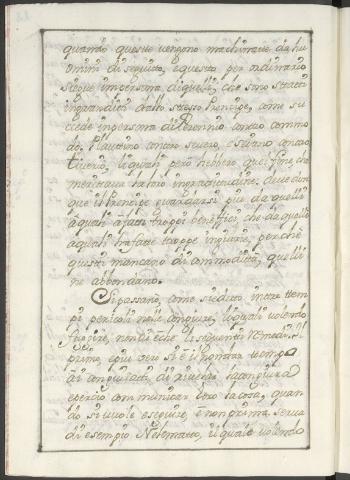 quando queste vengono machinate da hu
omini di seguito, e questo per ordinario
segue in persona di quelli, che sono stati
ingranditi dallo stesso Prencipe, come su
cede in persona di Perennio contro commo
do, Plautiano contro Severo, e Seiano contro
Tiberio, li quali però hebbero quel fine che
meritava la loro ingratitudine: deve dun
que il Prencipe guardarsi più da quelli
à quali à fatti troppi beneffici, che da quelli
a quali ha fatte troppe ingiurie, perche
questi mancano di commodità, quelli
ne abbondano.
Si passano, come si è detto in tre tem
pi pericoli nelle congiure, li quali volendo
fugire, non vi è che li seguenti remedi. Il
primo, e più vero si è il non dar tempo
à i congiurati di
perciò communicar loro la cosa, quan
do si vuole eseguire, e non prima. Serva
di esempio Nelemato, il quale volendo